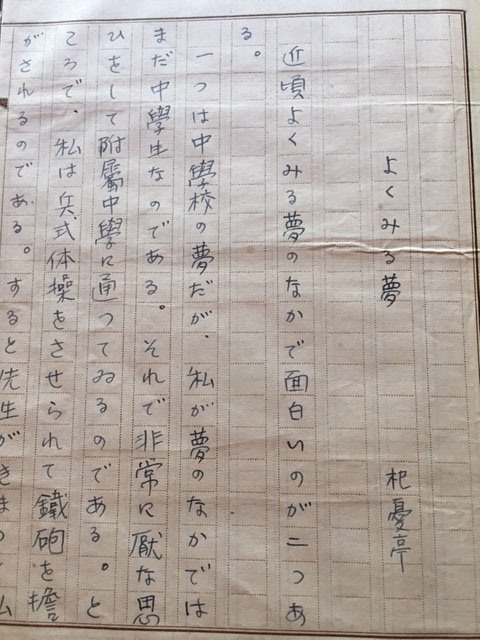 よくみる夢
杞憂亭
近頃よくみる夢のなかで面白いのが二つあ
る。
一つは中學校の夢だが、私が夢のなかでは
まだ中學生なのである。それで非常に厭な思
ひをして附屬中學に通つてゐるのである。と
ころで、私は兵式体操をさせられて鐵砲を擔
がされるのである。すると先生がきまつて私